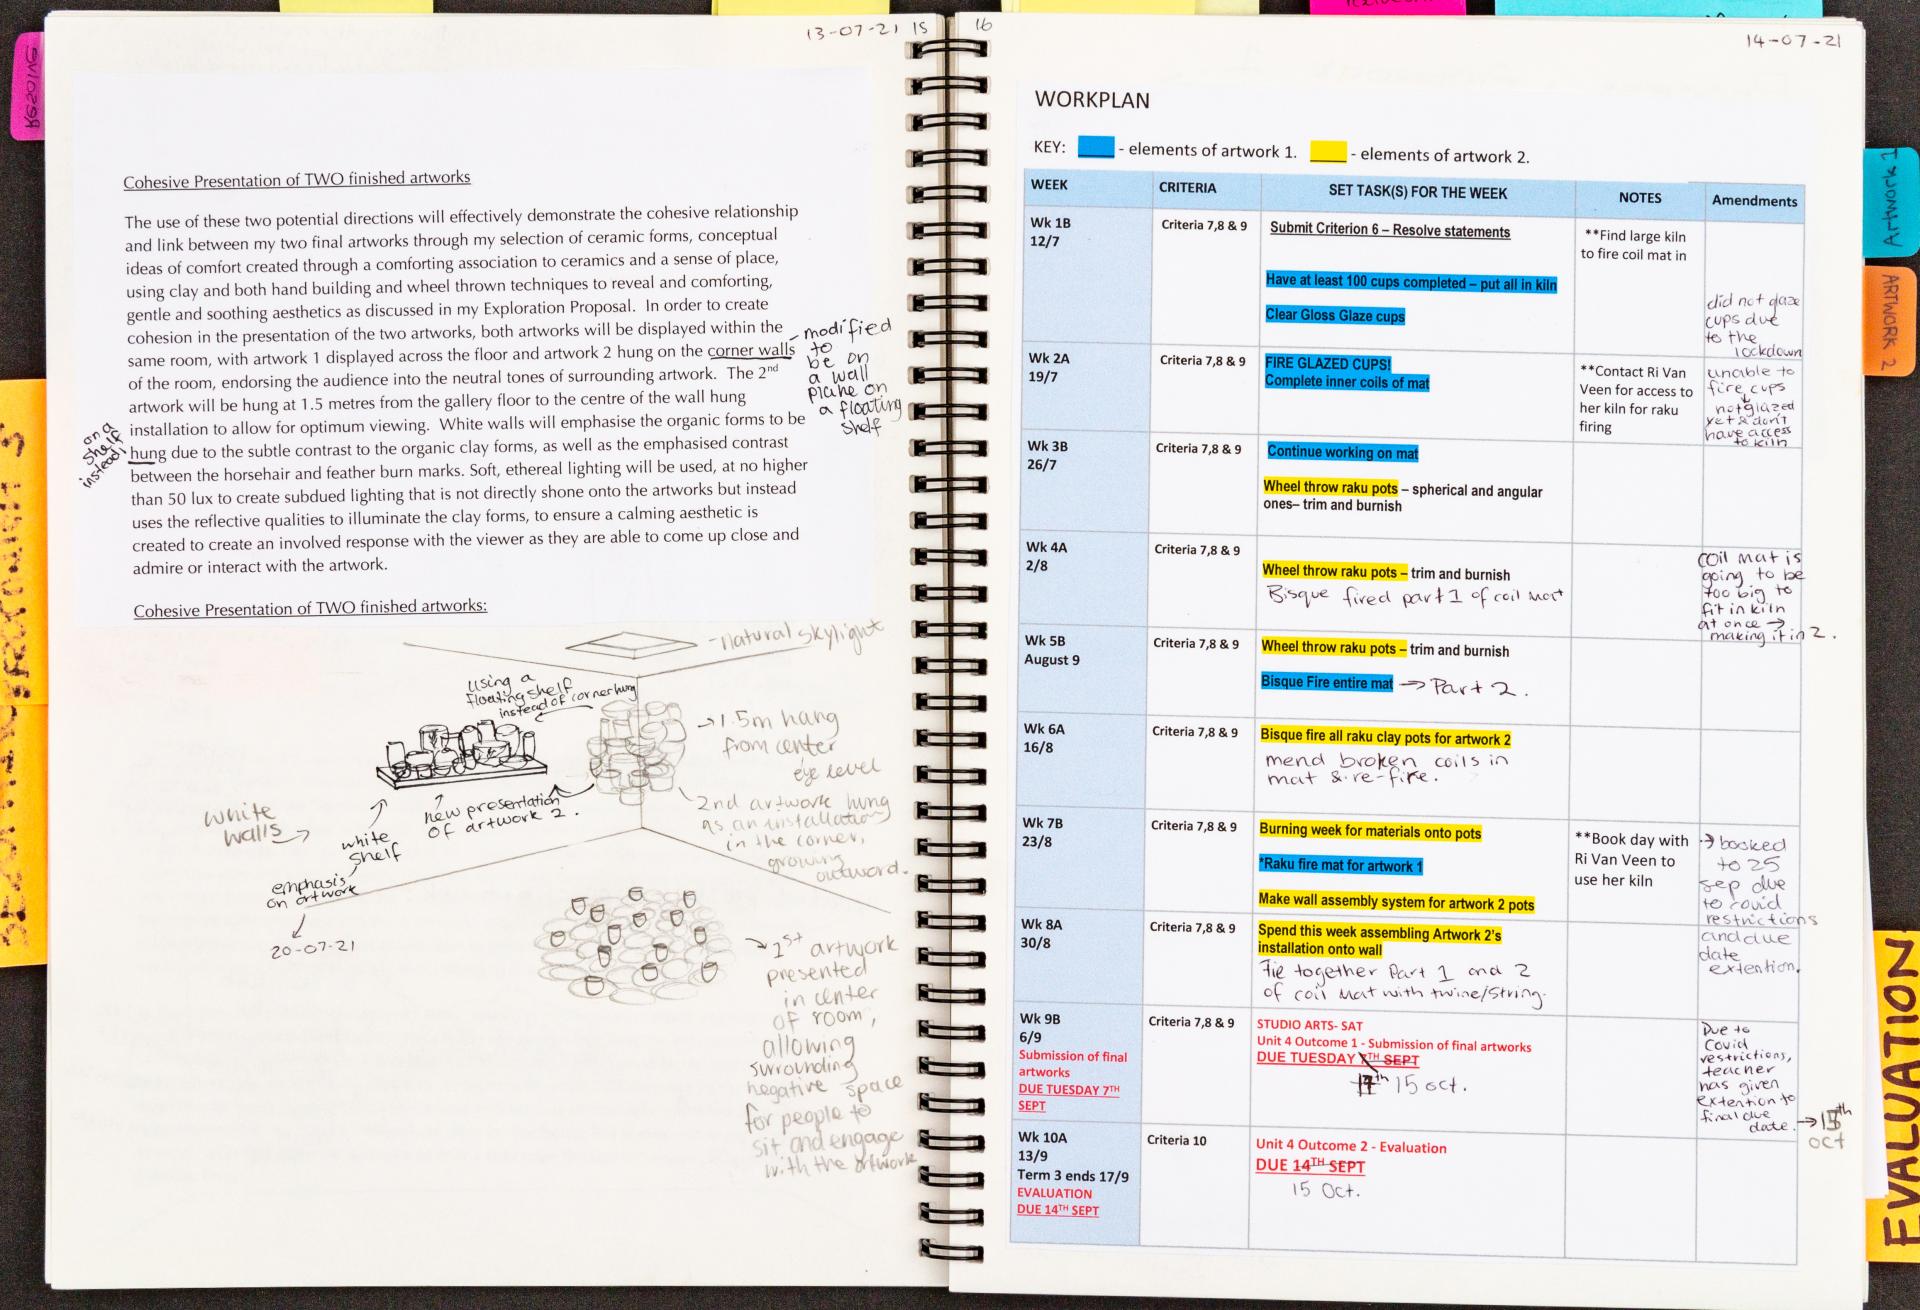 13-07-21 15
RESOLVE
Cohesive Presentation of TWO finished artworks
The use of these two potential directions will effectively demonstrate the cohesive relationship
and link between my two final artworks through my selection of ceramic forms, conceptual
ideas of comfort created through a comforting association to ceramics and a sense of place,
using clay and both hand building and wheel thrown techniques to reveal and comforting,
gentle and soothing aesthetics as discussed in my Exploration Proposal. In order to create
cohesion in the presentation of the two artworks, both artworks will be displayed within the
same room, with artwork 1 displayed across the floor and artwork 2 hung on the corner walls
of the room, endorsing the audience into the neutral tones of surrounding artwork. The 2nd
artwork will be hung at 1.5 metres from the gallery floor to the centre of the wall hung
installation to allow for optimum viewing. White walls will emphasise the organic forms to be
hung due to the subtle contrast to the organic clay forms, as well as the emphasised contrast
between the horsehair and feather burn marks. Soft, ethereal lighting will be used, at no higher
than 50 lux to create subdued lighting that is not directly shone onto the artworks but instead
uses the reflective qualities to illuminate the clay forms, to ensure a calming aesthetic is
created to create an involved response with the viewer as they are able to come up close and
admire or interact with the artwork.
- modified
to
be on
a wall
plane on
a floating
shelf
on a
shelf
instead!
Cohesive Presentation of TWO finished artworks:
- natural skylight
using a
floating shelf
instead of corner hung
→ 1.5m hang
from center
eye level
new presentation
of artwork 2.
2nd artwork hung
as an installation
in the corner,
growing
outword.
white
walls →
white
shelf
emphasis
on artwork
20-07-21
→ 1st artwork
presented
in center
of room,
allowing
surrounding
negative space
for people to
sit and engage
with the artwork
16
14-07-21
WORKPLAN
KEY: - elements of artwork 1. - elements of artwork 2.
WEEK CRITERIA SET TASK(S) FOR THE WEEK NOTES Amendments
Wk 1B
12/7
Criteria 7,8 & 9
Submit Criterion 6 – Resolve statements
Have at least 100 cups completed – put all in kiln
Clear Gloss Glaze cups
**Find large kiln
to fire coil mat in
did not glaze
cups due
to the
lockdown
Wk 2A
19/7
Criteria 7,8 & 9
FIRE GLAZED CUPS!
Complete inner coils of mat
**Contact Ri Van
Veen for access to
her kiln for raku
firing
unable to
fire cups
↓
not glazed
yet & don't
have access
to kiln
Wk 3B
26/7
Criteria 7,8 & 9
Continue working on mat
Wheel throw raku pots – spherical and angular
ones– trim and burnish
Wk 4A
2/8
Criteria 7,8 & 9
Wheel throw raku pots – trim and burnish
Bisque fired part 1 of coil mat
coil mat is
going to be
too big to
fit in kiln
at once →
making it in 2.
Wk 5B
August 9
Criteria 7,8 & 9
Wheel throw raku pots – trim and burnish
Bisque Fire entire mat → Part 2.
Wk 6A
16/8
Criteria 7,8 & 9
Bisque fire all raku clay pots for artwork 2
mend broken coils in
mat & re-fire.
Wk 7B
23/8
Criteria 7,8 & 9
Burning week for materials onto pots
*Raku fire mat for artwork 1
Make wall assembly system for artwork 2 pots
**Book day with
Ri Van Veen to
use her kiln
→ booked
to 25
sep due
to covid
restrictions
and due
date
extention.
Wk 8A
30/8
Criteria 7,8 & 9
Spend this week assembling Artwork 2's
installation onto wall
Tie together Part 1 and 2
of coil mat with twine/string.
Wk 9B
6/9
Submission of final
artworks
DUE TUESDAY 7TH
SEPT
Criteria 7,8 & 9
STUDIO ARTS- SAT
Unit 4 Outcome 1 - Submission of final artworks
DUE TUESDAY 7TH SEPT
15 oct.
Due to
Covid
restrictions,
teacher
has given
extention to
final due
date. → 15th
oct
Wk 10A
13/9
Term 3 ends 17/9
EVALUATION
DUE 14TH SEPT
Criteria 10
Unit 4 Outcome 2 - Evaluation
DUE 14TH SEPT
15 Oct.
Artwork 1
ARTWORK 2
EVALUATION